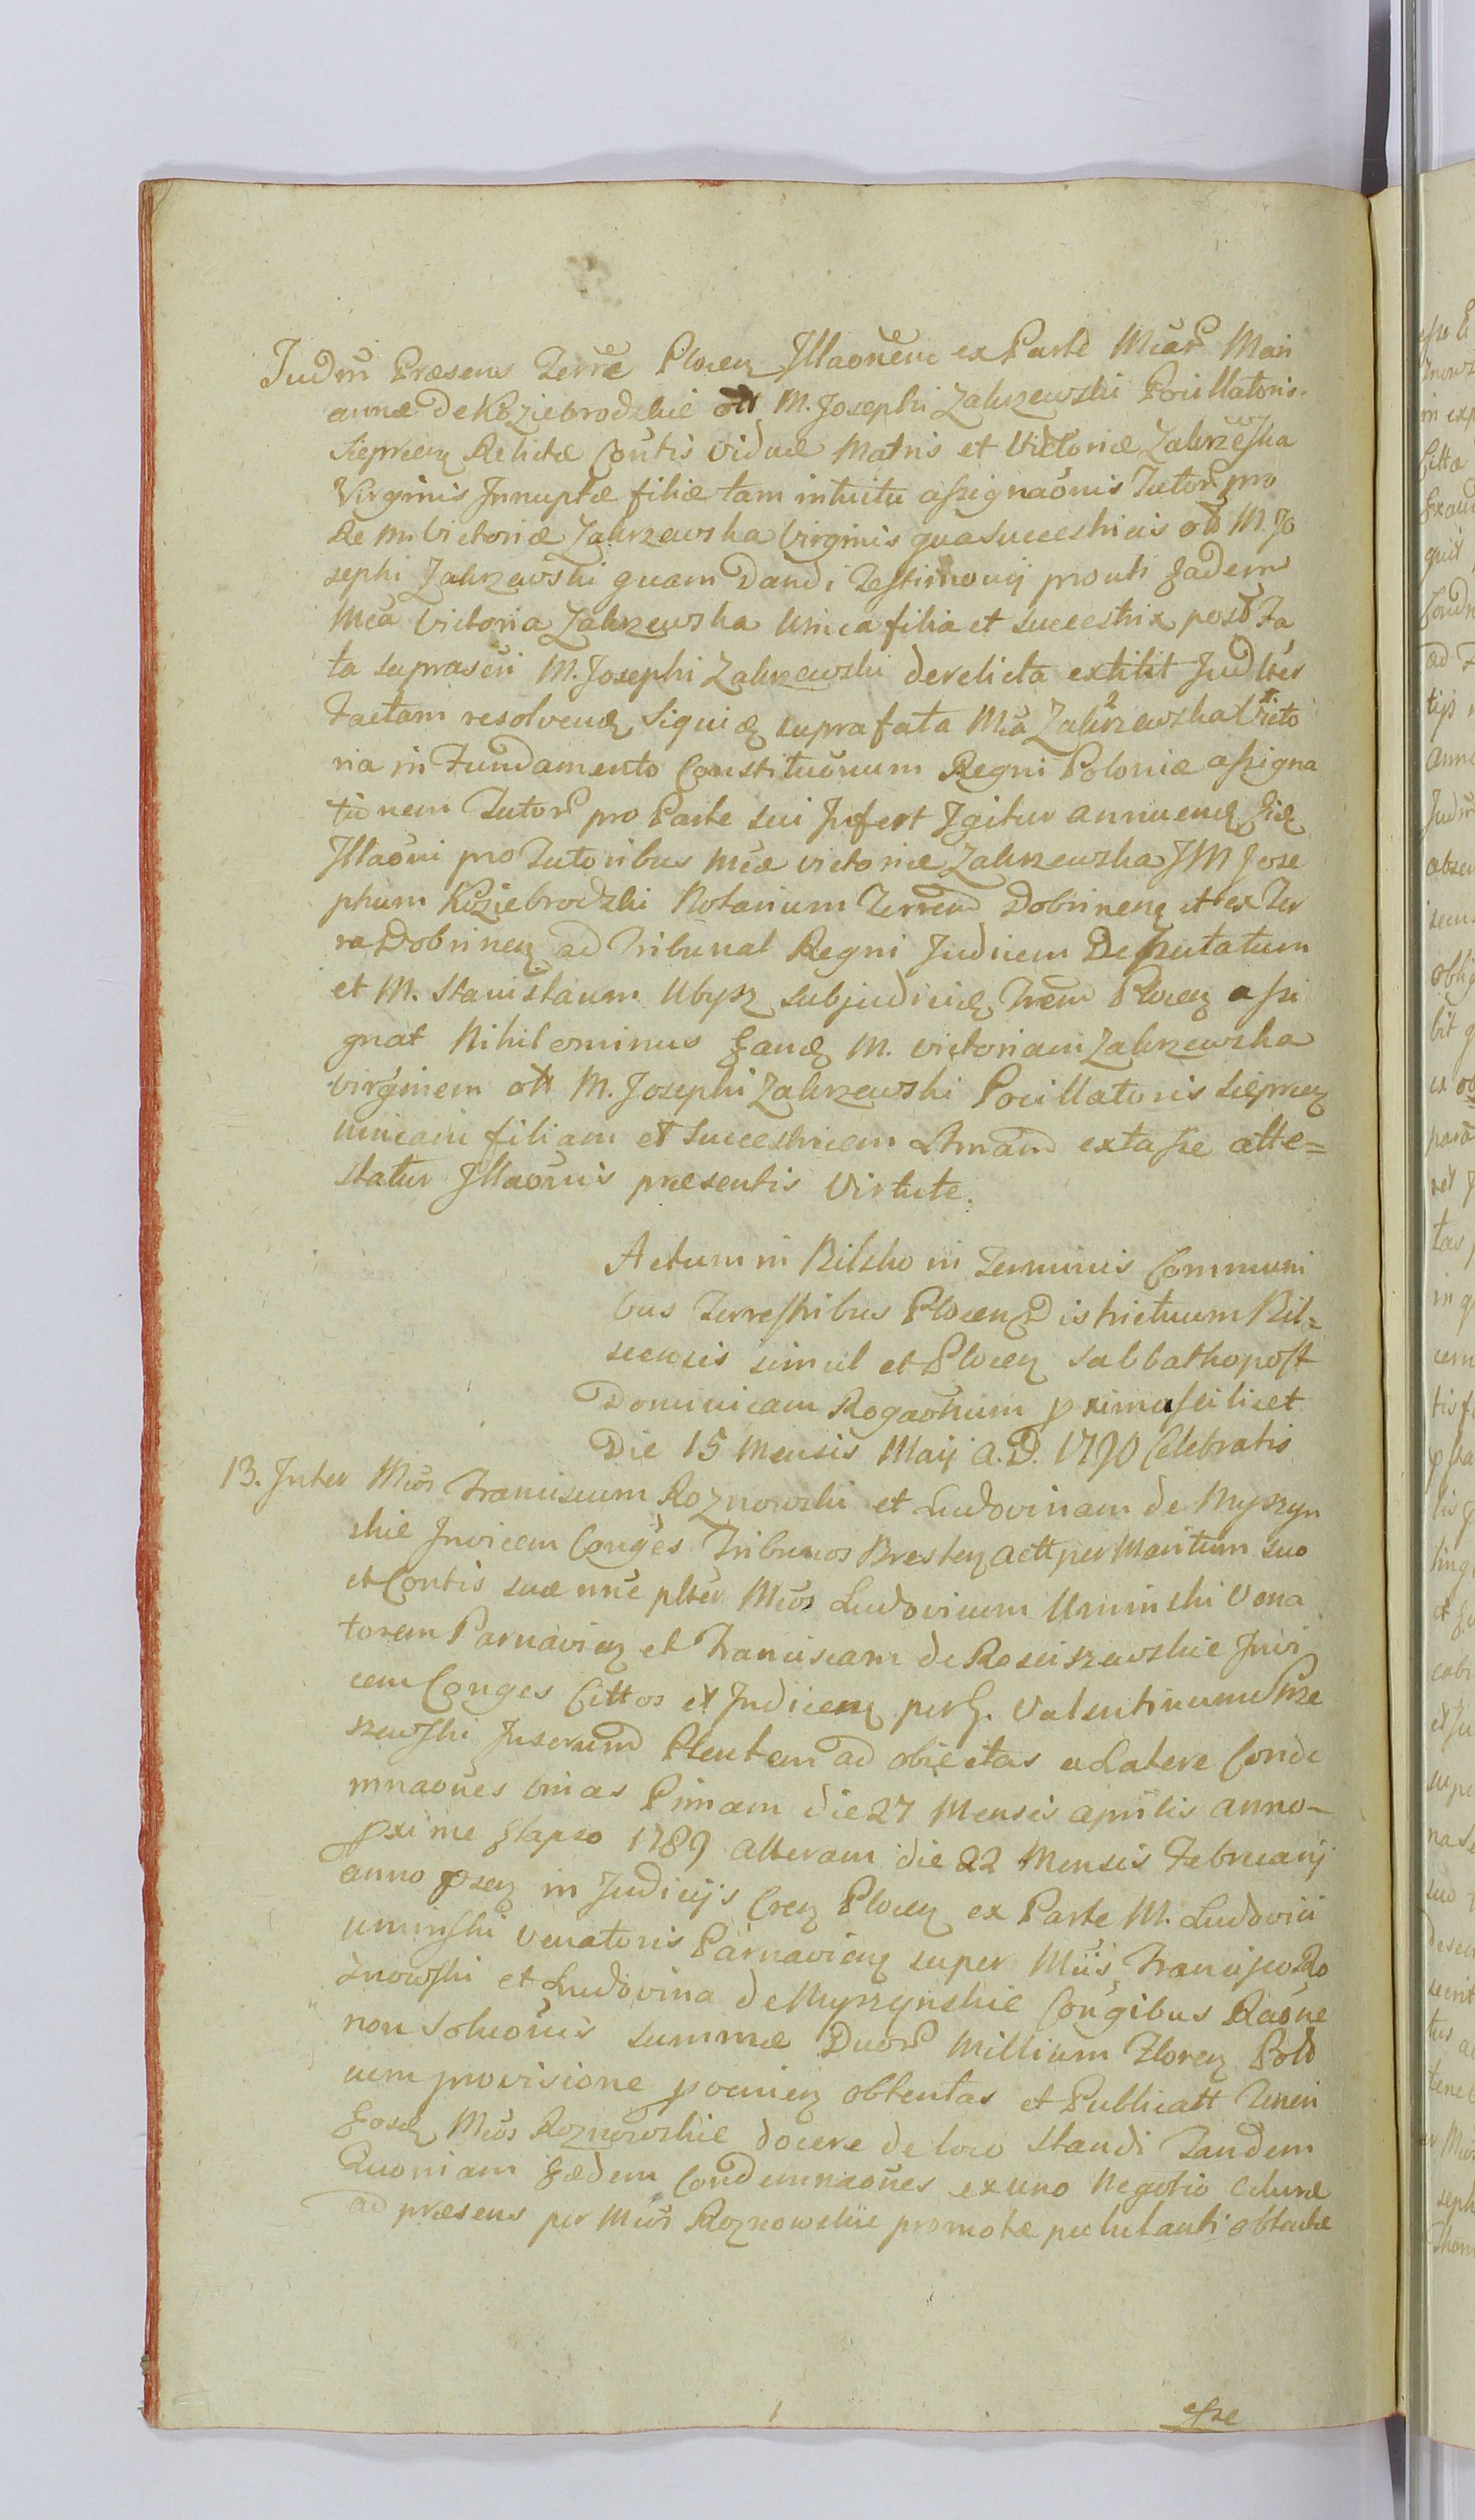 Judm Præsens Terre Plocen Jllaonem ex Parte Mear Mari
annæ de Koziebrodzkie ott M. Josephi Zakrzewski Pocillatoris
Sieprcen Relictæ Contis viduæ Matris et Victoriæ Zakrzeska
Virginis Jnnuptæ filiæ tam intuitu assignaonis Tutor pro
Re M. Victoriæ Zakrzewska Virginis qua Successricis ott M. Jo
sephi Zakrzewski quam Dandi Testimonij prouti Eadem
Mca Victoria Zakrzewska Unica filia et Successrix post Fa
ta suprascri M. Josephi Zakrzewski derelicta extitit Judlter
Factam resolvend Siquid suprafata Mca Zakrzewska Victo
ria in Fundamento Constituonum Regni Poloniæ assigna
tionem Tutor pro Parte sui Jnfert Jgitur annuend Eid
Jllaoni pro Tutoribus Mcæ victoriæ Zakrzewska JM Jose
phum Koziebrodzki Notarium Terrem Dobrinen et ex Ter
ra Dobrinen ad Tribunal Regni Judicem Deputatum
et M. Stanislaum Ubysz Subjudicid Trem Plocen assi
gnat Nihilominus Eand M. victoriam Zakrzewska
virginem ott M. Josephi Zakrzewski Pocillatoris Sieprcen
unicam filiam et Successricem extasse atte=
statur Jllaonis presentis Virtute.
Actum in Bilsko in Terminis Communi
bus Terrestribus Plocen Districtuum Bil=
scensis simul et Plocen Sabbatho post
Dominicam Rogaonum pxima scilicet
Die 15 Mensis Maij A.D. 1790 Celebratis
13. Jnter Mcos Franciscum Roznowski et Ludovinam de Myszyn
skie Jnvicem Conges Tribunos Bresten actt per Maritum suo
et Contis suæ nne plter Mcos Ludovicum Uminski Vena
torem Parnavien et Franciscam de Rosciszewskie Jnvi
cem Conges Cittos et Judicen per G. Valentinum Prze
szewski Juserum Plentem ad obiectas a Latere Conde
mnaones binas Pimam die 27 Mensis aprilis anno
pxime Elapso 1789 alteram die 22 Mensis Februarij
anno psen in Judicijs Cren Plocen ex Parte M. Ludovici
uminski venatoris Parnavien super Mcis Francisco Ro
znowski et Ludovina de Myszynskie Congibus Raone
non Soluonis summæ Duor Millium Floren Pold
cum provisione pvenien obtentas et Publicatt Teneri
Eosd Mcos Roznowskie docere de loco standi Tandem
Quoniam Eædem Condemnaones ex uno Negotio
ad præsens per Mcos Roznowskie promotæ pullulanti obtentæ
esse